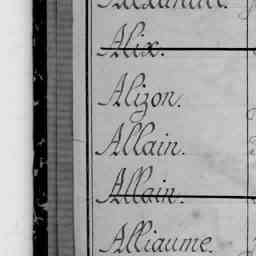 Alexandre.
Alix.
Alizon.
Allain.
Allain.
Alliaume.